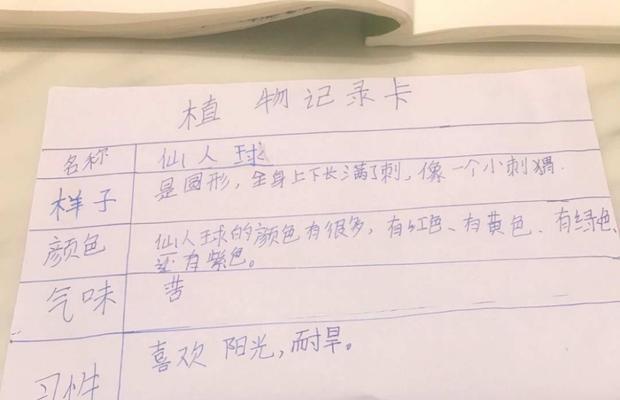 植物记录卡
名称 仙人球
样子 是圆形，全身上下长满了刺，像一个小刺猬.
颜色 仙人球的颜色有很多，有红色、有黄色、有绿色、
还有紫色。
气味 苦
习性 喜欢阳光，耐旱。